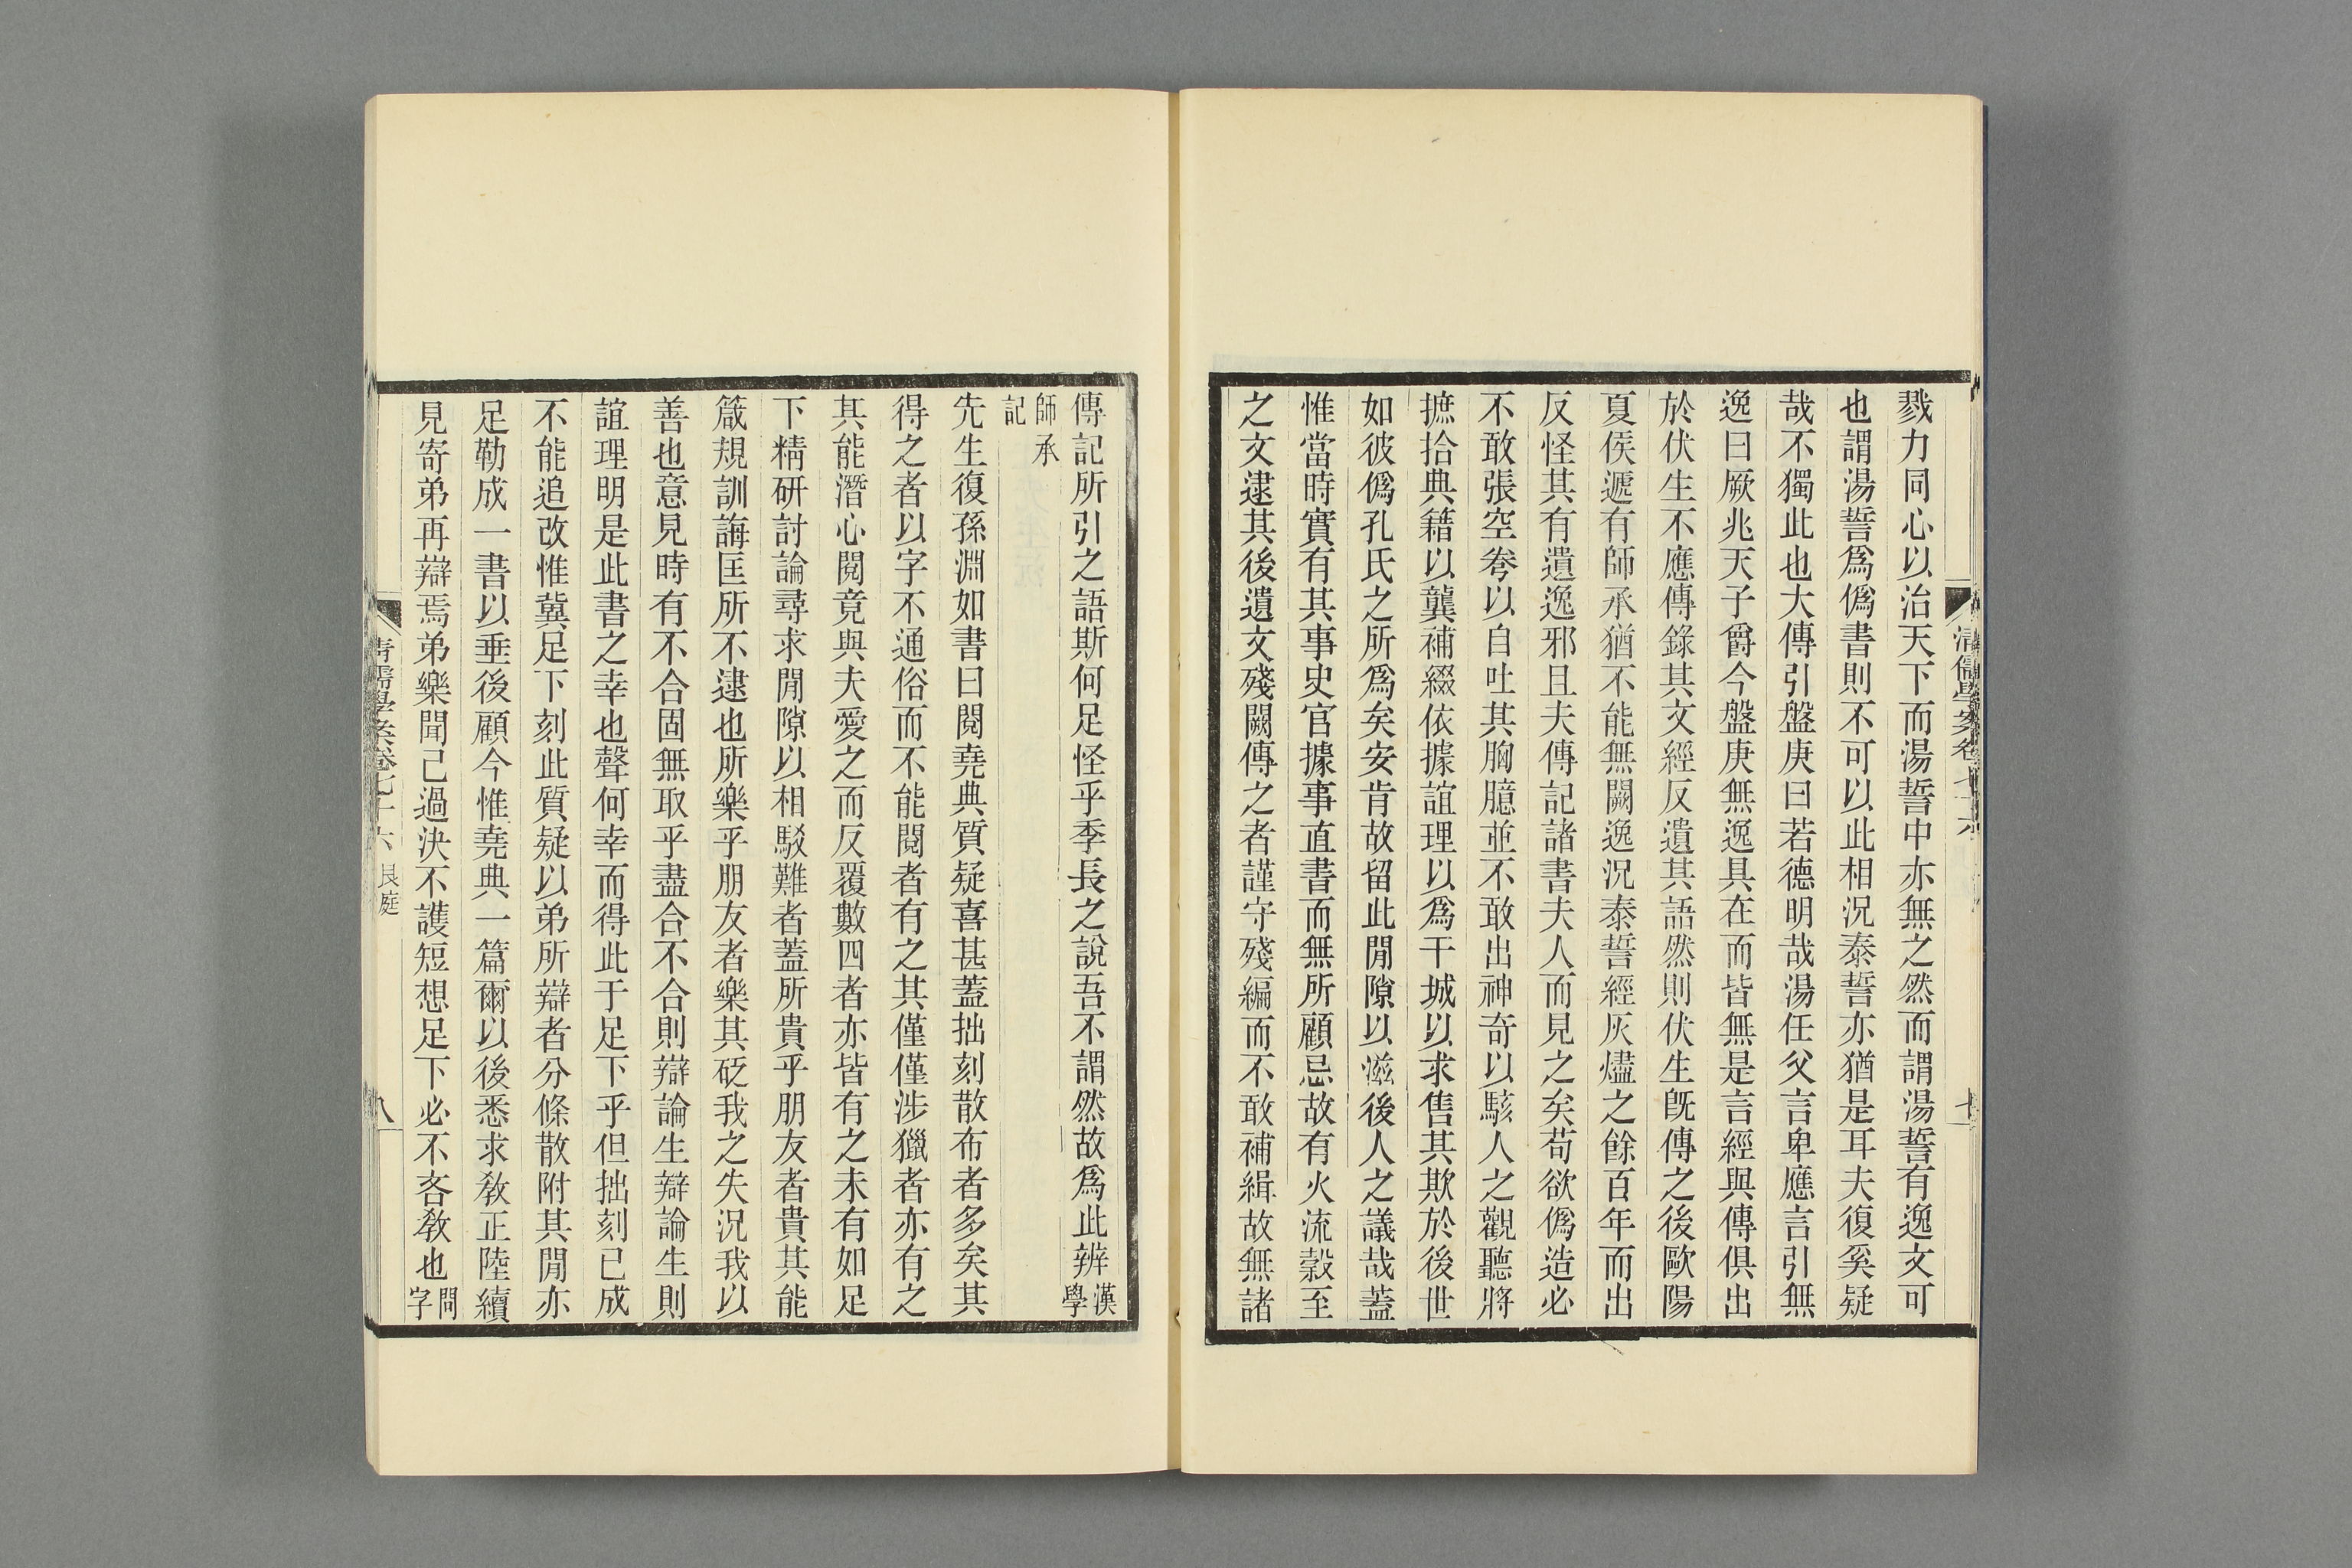 戮力同心以治天下而湯誓中亦無之然而謂湯誓有逸文可
也謂湯誓爲僞書則不可以此相況泰誓亦猶是耳夫復奚疑
哉不獨此也大傳引盤庚曰若德明哉湯任父言卑應言引無
逸曰厥兆天子爵今盤庚無逸具在而皆無是言經與傳俱出
於伏生不應傳錄其文經反遺其語然則伏生旣傳之後歐陽
夏侯遞有師承猶不能無闕逸況泰誓經灰燼之餘百年而出
反怪其有遺逸邪且夫傳記諸書夫人而見之矣苟欲僞造必
不敢張空弮以自吐其胸臆並不敢出神奇以駭人之觀聽將
摭拾典籍以龔補綴依據誼理以爲干城以求售其欺於後世
如彼僞孔氏之所爲矣安肯故留此閒隙以滋後人之議哉蓋
惟當時實有其事史官據事直書而無所顧忌故有火流穀至
之文逮其後遺文殘闕傳之者謹守殘編而不敢補緝故無諸
傳記所引之語斯何足怪乎季長之說吾不謂然故爲此辨漢學
師承記
先生復孫淵如書曰閱堯典質疑喜甚蓋拙刻散布者多矣其
得之者以字不通俗而不能閱者有之其僅僅涉獵者亦有之
其能潛心閱竟與夫愛之而反覆數四者亦皆有之未有如足
下精研討論尋求閒隙以相駁難者蓋所貴乎朋友者貴其能
箴規訓誨匡所不逮也所樂乎朋友者樂其砭我之失況我以
善也意見時有不合固無取乎盡合不合則辯論生辯論生則
誼理明是此書之幸也聲何幸而得此于足下乎但拙刻已成
不能追改惟冀足下刻此質疑以弟所辯者分條散附其閒亦
足勒成一書以垂後顧今惟堯典一篇爾以後悉求敎正陸續
見寄弟再辯焉弟樂聞己過決不護短想足下必不吝敎也問字
清儒學案卷七十六 艮庭
八